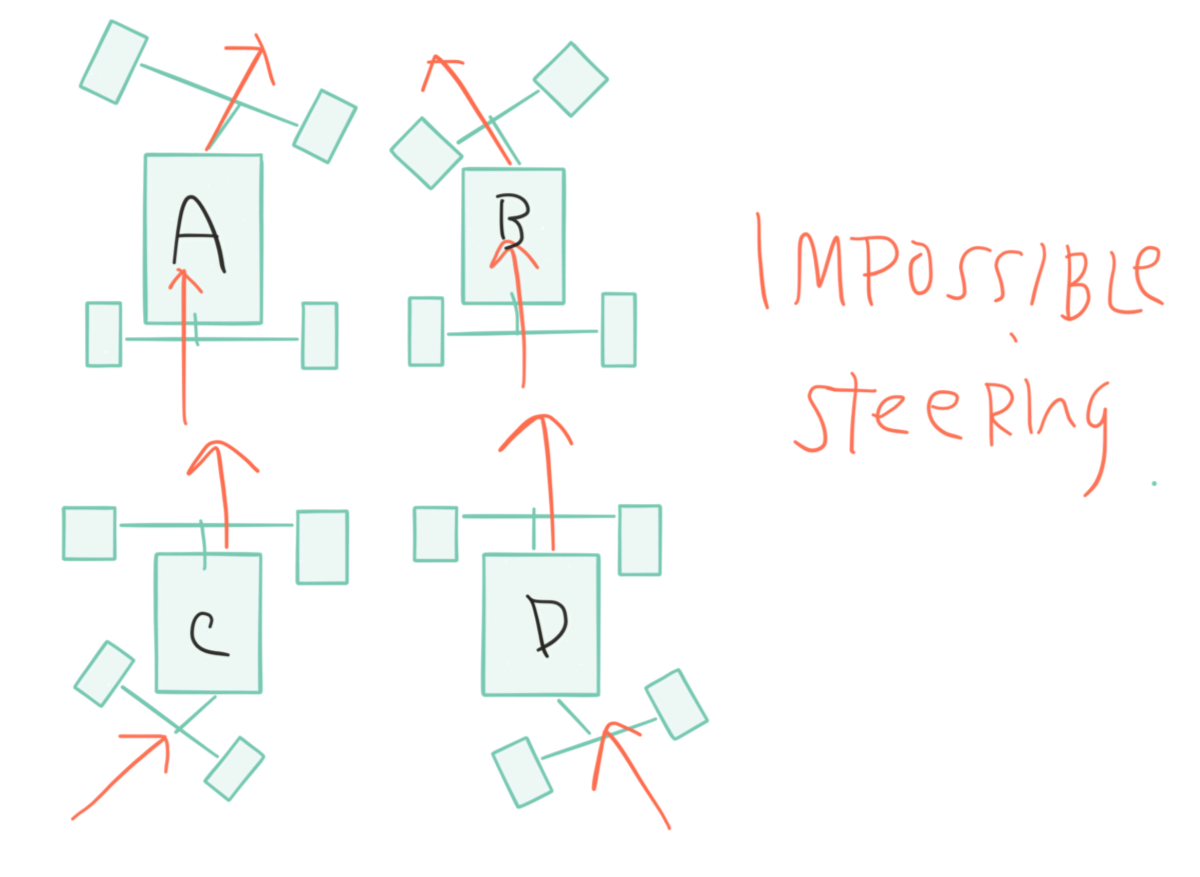 A
B
IMPOSSIBLE
steering
C
D